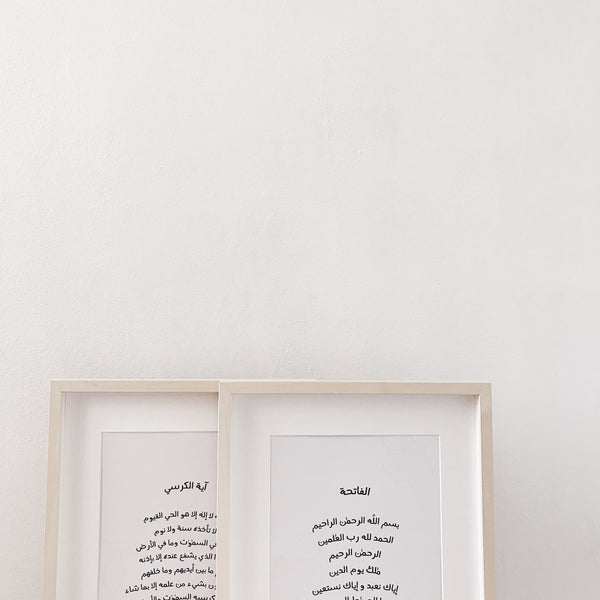 آية الكرسي
لا إله إلا هو الحي القيوم
لا تأخذه سنة ولا نوم
في السموت وما في الأرض
الذي يشفع عنده إلا بإذنه
ما بين أيديهم وما خلفهم
بشيء من علمه إلا بما شاء
كرسيه السموت والأرض
الفاتحة
بسم الله الرحمن الراحيم
الحمد لله رب العلمين
الرحمن الرحيم
ملك يوم الدين
إياك نعبد و إياك نستعين